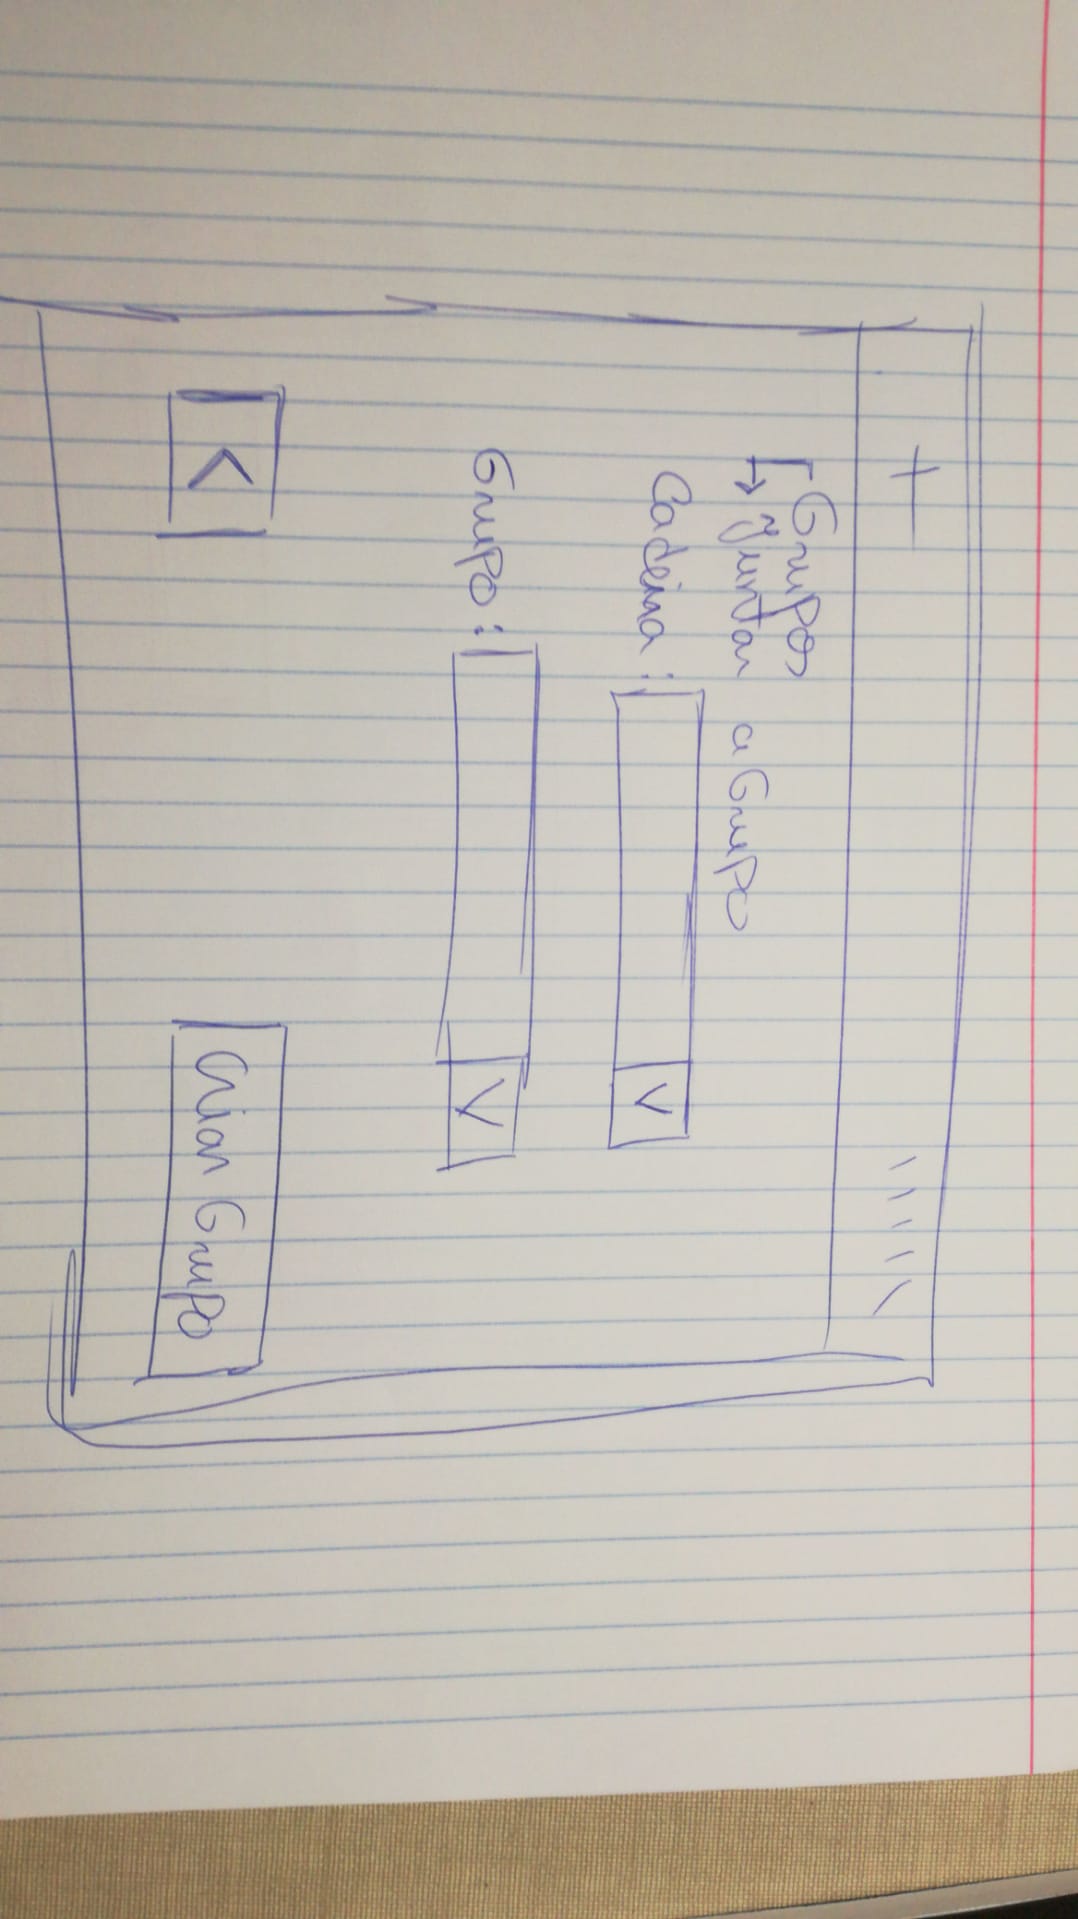 Grupos
Juntar a Grupo
Cadeira :
V
Grupo :
V
<
Criar Grupo